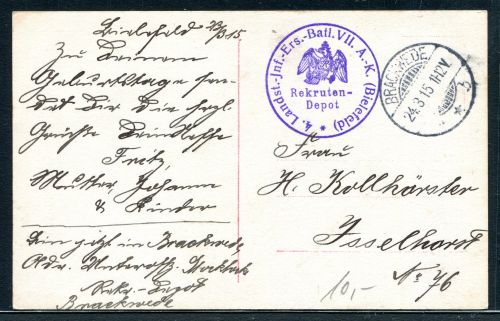 Bielefeld 23/3 15
Zu Deinem
Geburtstage sen-
det Dir die herzl.
Grüße Dein Neffe
Fritz,
Mutter, Johann
& Kinder
Bin jetzt in Brackwede
Adr. Unteroff.
Rekr.-Depot
Brackwede
4. Landst.-Inf.-Ers.-Batl. VII. A.-K. (Bielefeld)
Rekruten-
Depot
BRACKWEDE
24.3.15 11-12V.
Frau
H. Kollhörster
Isselhorst
No 76
10,-